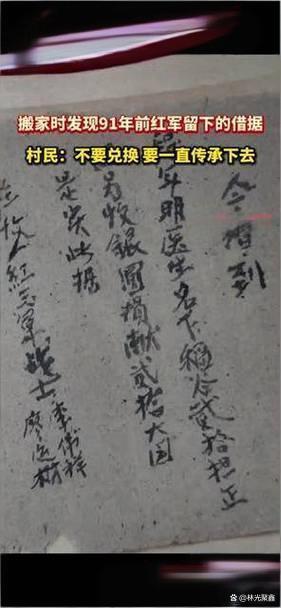 搬家时发现91年前红军留下的借据
村民：不要兑换 要一直传承下去
今 到
年明医生名下稻谷贰拾担正
另收銀圓捐献贰拾大园
是实此据
立收人紅三軍战士李伟祥
廖
林光聚鑫